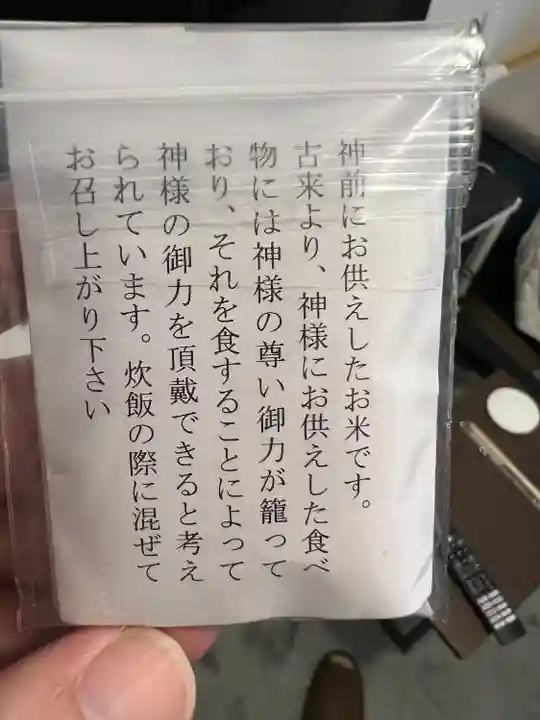 神前にお供えしたお米です。
古来より、神様にお供えした食べ
物には神様の尊い御力が籠って
おり、それを食することによって
神様の御力を頂戴できると考え
られています。炊飯の際に混ぜて
お召し上がり下さい